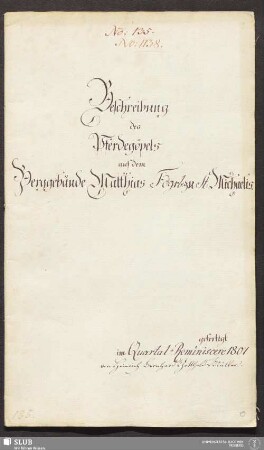 No: 135.
No: 1138.
Beschreibung
des
Pferdegöpels
auf dem
Berggebäude Matthias Fdgr. zu St. Michaelis,
gefertigt
im Quartal Reminiscere 1801
von Heinrich Bernhard Gotthelf Müller.
135.
SLUB